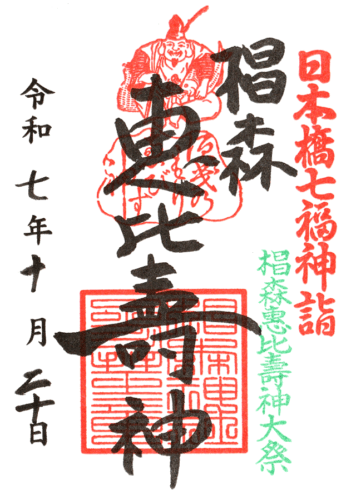 日本橋七福神詣
椙森惠比壽神大祭
椙森
恵比壽神
令和七年十月二十日